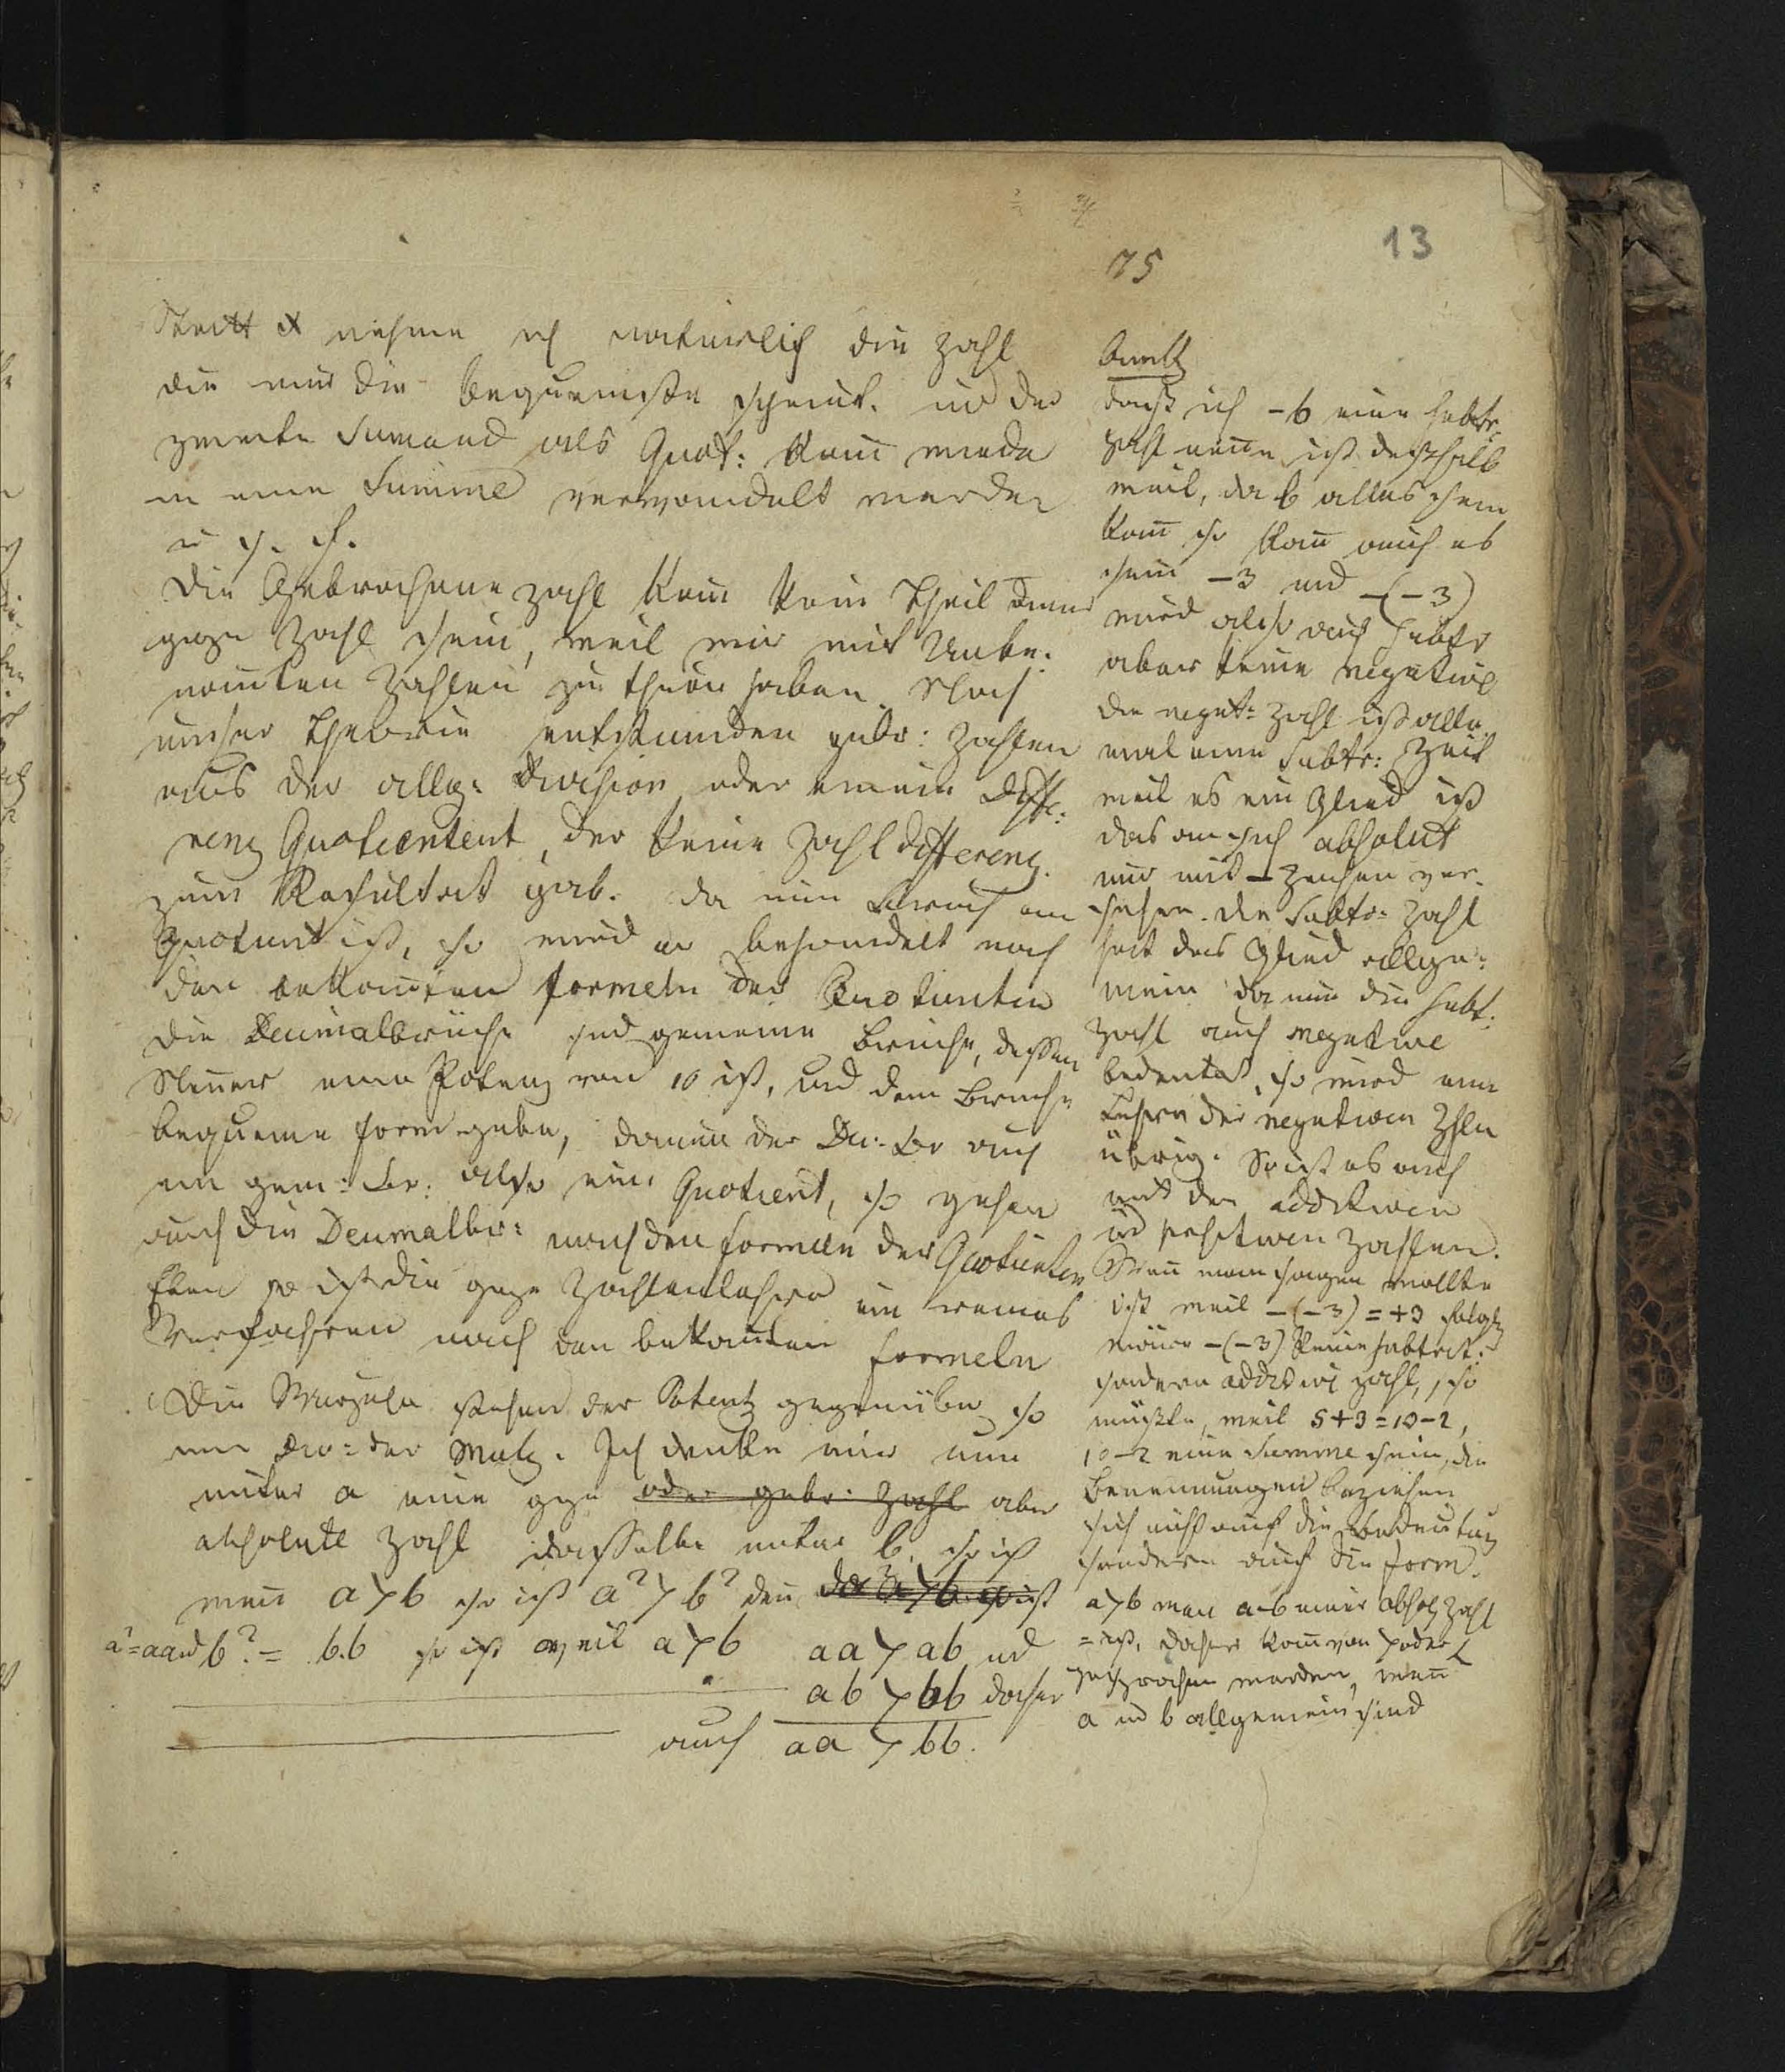 13
75
Statt x nehme ich natürlich die Zahl
die mir die bequemste scheint. und der
zweite Sumand als Quot: kañ wieder
in eine Summe verwandelt werden
u. s. f.
Die Gebrochene Zahl kañ kein Theil einer
gzen Zahl sein, weil wir mit Unbe-
nañten Zahlen zu thun haben Nach
unser Theorie entstunden gebr: Zahlen
aus der allg: Division oder einem Diffe-
renz Quotientent, der keine Zahl differenz
zum Resultat gab. da nun Bruch ein
Quotient ist, so wird er behandelt nach
den bekañten formeln der Quotienten
Die Decimalbrüche sind gemeine Brüche, dessen
Neñer eine Potenz von 10 ist, und dem Bruche
bequeme form geben, da nun der Dec. Br auch
ein gem: Br: also ein Quotient, so gehen
auch die Decimalbr: nach den formeln der Quotienten
Eben so ist die gze Zahlenlehre ein reines
Verfahren nach den bekañten formeln
Die Wurzeln stehen der Potenz gegenüber so
wie Div: der Mult. Ich denke mir nun
unter a eine gze oder gebr: Zahl aber
absolute Zahl dasselbe unter b, so ist
weñ a > b so ist a² > b² deñ da a > b so ist
a²=aa und b² = b.b so ist weil a > b aa > ab und
ab > bb daher
auch aa > bb.
Anmk
daß ich -b eine subtr-
Zahl neñe ist deßhalb
weil, da b alles sein
kañ so kañ auch es
sein -3 und -(-3)
wird also auch subtr
aber keine negative
die negat: Zahl ist alle-
mal eine Subtr: Zahl
weil es ein Glied ist
das an sich absolut
nur mit - Zeichen ver-
sehen. die Subtr: Zahl
hat das Glied allge-
mein da nun die subt:
Zahl auch negative
bedeutet, so wird eine
Lehre der negativen Zhlen
übrig. So ist es auch
mit den additiven
und positiven Zahlen.
Weñ man sagen wollte
ist weil -(-3) = +3 folglich
wäre -(-3) keine subtrat:
sondern additive Zahl, so
müßte, weil 5+3=10-2,
10-2 eine Summe sein, die
Beneñungen beziehen
sich nicht auf die Bedeutung
sondern auf die form.
a>b weñ a-b einer absol Zahl
= ist, daher kañ von > oder <
gesprochen werden, weñ
a und b allgemein sind